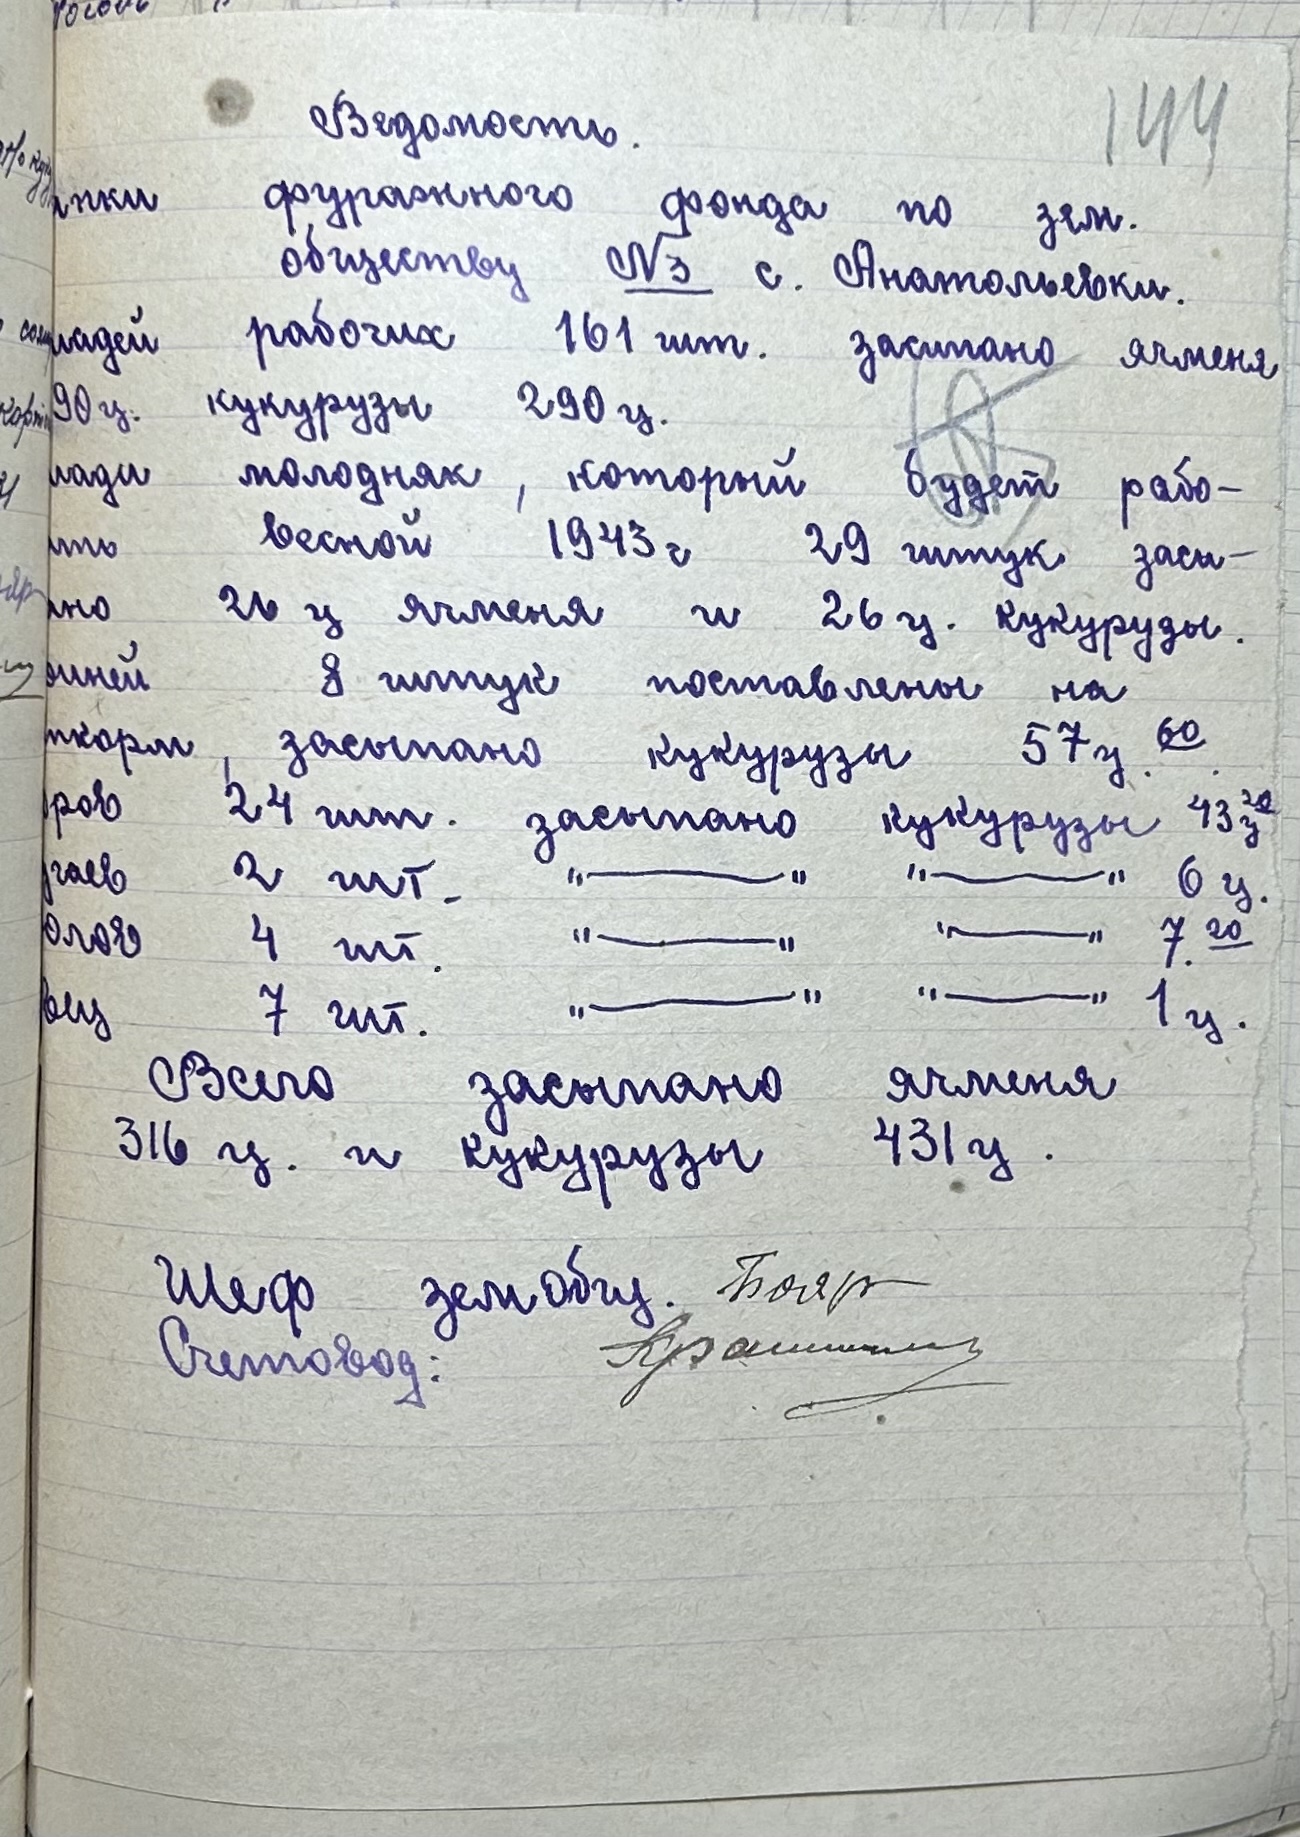 144
Ведомость.
пки фуражного фонда по зем.
обществу №3 с. Анатольевки.
шадей рабочих 161 шт. засипано ячменя
90 ц. кукурузы 290 ц.
шади молодняк, который будет рабо-
ть весной 1943 г 29 штук засы-
ано 26 ц ячменя и 26 ц. кукурузы.
иней 8 штук поставлены на
ткорм, засыпано кукурузы 57 ц. 60.
ров 24 шт. засыпано кукурузы 43 ц 20
угаев 2 шт. „——" „——" 6 ц.
олов 4 шт. „——" „——" 7. 20
вец 7 шт. „——" „——" 1 ц.
Всего засыпано ячменя
316 ц. и кукурузы 431 ц.
Шеф земобщ. Бояр
Счетовод: